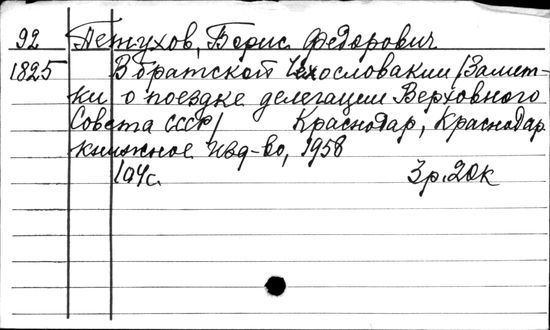 92 Петухов, Борис Федорович
1825 В братской Чехословакии /Замет-
ки о поездке делегации Верховного
Совета СССР/ Краснодар, Краснодар.
книжное изд-во, 1958
104с. 3р.20к